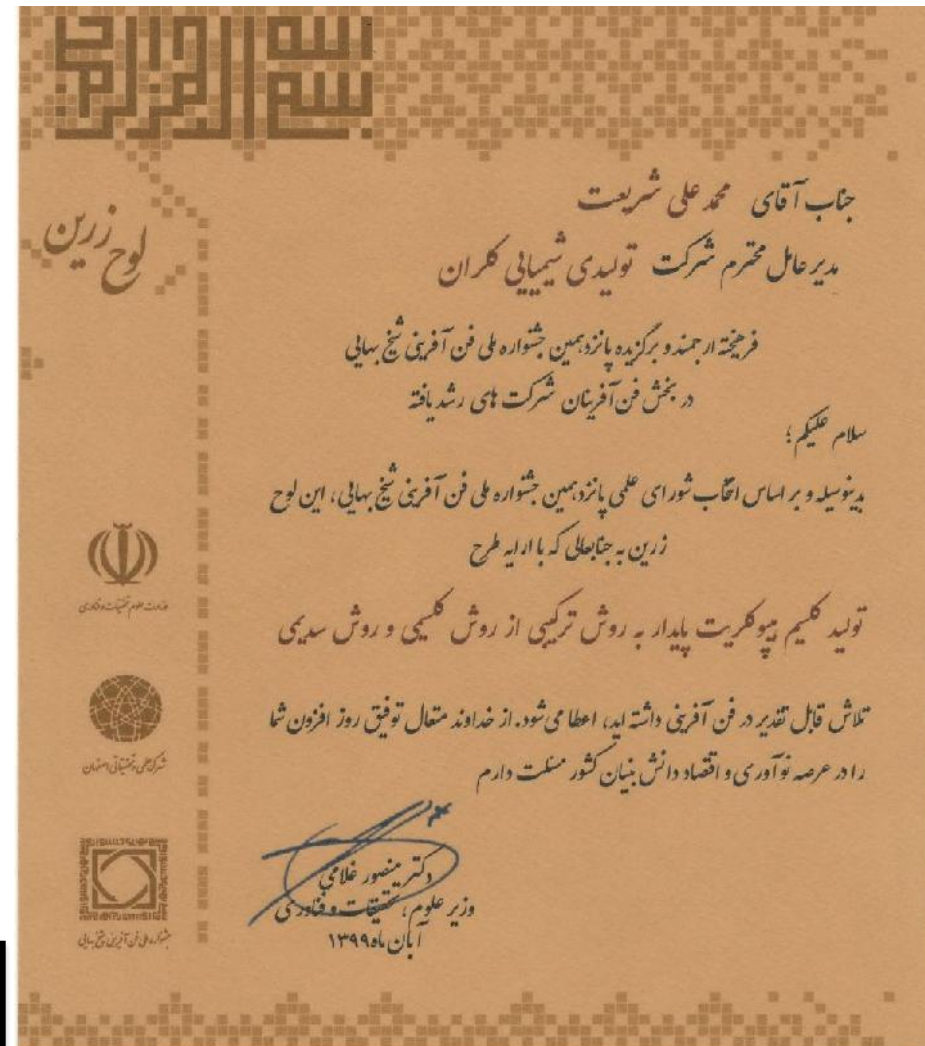 بسم الله الرحمن الرحیم
لوح زرین
جناب آقای محمد علی شریعت
مدیر عامل محترم شرکت تولیدی شیمیایی کلران
فرهیخته ارجمند و برگزیده پانزدهمین جشنواره ملی فن آفرینی شیخ بهایی
در بخش فن آفرینان شرکت های رشد یافته
سلام علیکم؛
بدینوسیله و بر اساس انتخاب شورای علمی پانزدهمین جشنواره ملی فن آفرینی شیخ بهایی، این لوح
زرین به جنابعالی که با ارایه طرح
تولید کلسیم هیپوکلریت پایدار به روش ترکیبی از روش کلسیمی و روش سدیمی
تلاش قابل تقدیر در فن آفرینی داشته اید، اعطا می‌شود. از خداوند متعال توفیق روز افزون شما
را در عرصه نوآوری و اقتصاد دانش بنیان کشور مسئلت دارم
دکتر منصور غلامی
وزیر علوم، تحقیقات و فناوری
آبان ماه ۱۳۹۹
وزارت علوم تحقیقات و فناوری
شهرک علمی و تحقیقاتی اصفهان
جشنواره ملی فن آفرینی شیخ بهایی